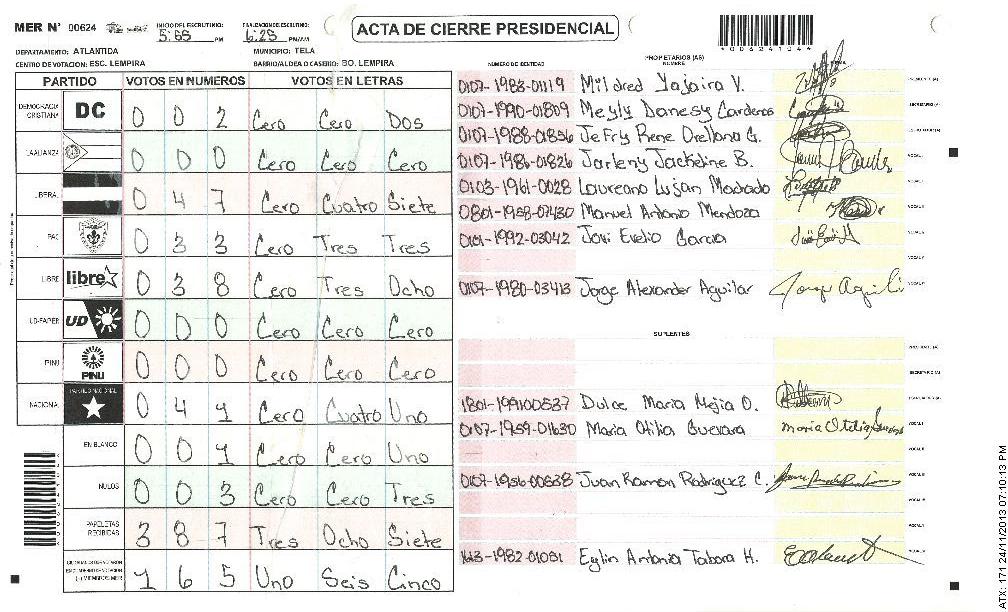 MER N° 00624 INICIO DEL ESCRUTINIO: 5:55 PM FINALIZACION DE ESCRUTINIO: 6:25 PM/AM
ACTA DE CIERRE PRESIDENCIAL
DEPARTAMENTO: ATLANTIDA MUNICIPIO: TELA
CENTRO DE VOTACION: ESC. LEMPIRA BARRIO/ALDEA O CASERIO: BO. LEMPIRA
PARTIDO VOTOS EN NUMEROS VOTOS EN LETRAS
DEMOCRACIA CRISTIANA DC 0 0 2 Cero Cero Dos
LA ALIANZA 0 0 0 Cero Cero Cero
LIBERAL 0 4 7 Cero Cuatro Siete
PAC 0 3 3 Cero Tres Tres
LIBRE libre 0 3 8 Cero Tres Ocho
UD-FAPER UD 0 0 0 Cero Cero Cero
PINU PINU 0 0 0 Cero Cero Cero
NACIONAL PARTIDO NACIONAL 0 4 1 Cero Cuatro Uno
EN BLANCO 0 0 1 Cero Cero Uno
NULOS 0 0 3 Cero Cero Tres
PAPELETAS RECIBIDAS 3 8 7 Tres Ocho Siete
1 6 5 Uno Seis Cinco
NUMERO DE IDENTIDAD PROPIETARIOS (AS) NOMBRE FIRMA
0107-1983-01119 Mildred Yajaira V. PRESIDENTE (A)
0107-1990-01809 Meyly Danesy Cardenas SECRETARIO (A)
0107-1988-01856 Jefry Rene Orellana G. ESCRUTADOR (A)
0107-1986-01826 Jarleny Jackeline B. VOCAL I
0103-1961-0028 Laureano Lujan Machado
0801-1958-07430 Manuel Antonio Mendoza
0101-1992-03042 Javi Evelio Garcia
0107-1980-03413 Jorge Alexander Aguilar Jorge Aguilar
SUPLENTES
PRESIDENTE (A)
SECRETARIO (A)
1801-199100537 Dulce Maria Mejia O. ESCRUTADOR (A)
0107-1959-01630 Maria Otilia Guevara VOCAL I
0107-1956-00838 Juan Ramon Rodriguez C.
1613-1982-01051 Eglin Antonio Tabora H.
ATX: 171 24/11/2013 07:10:13 PM